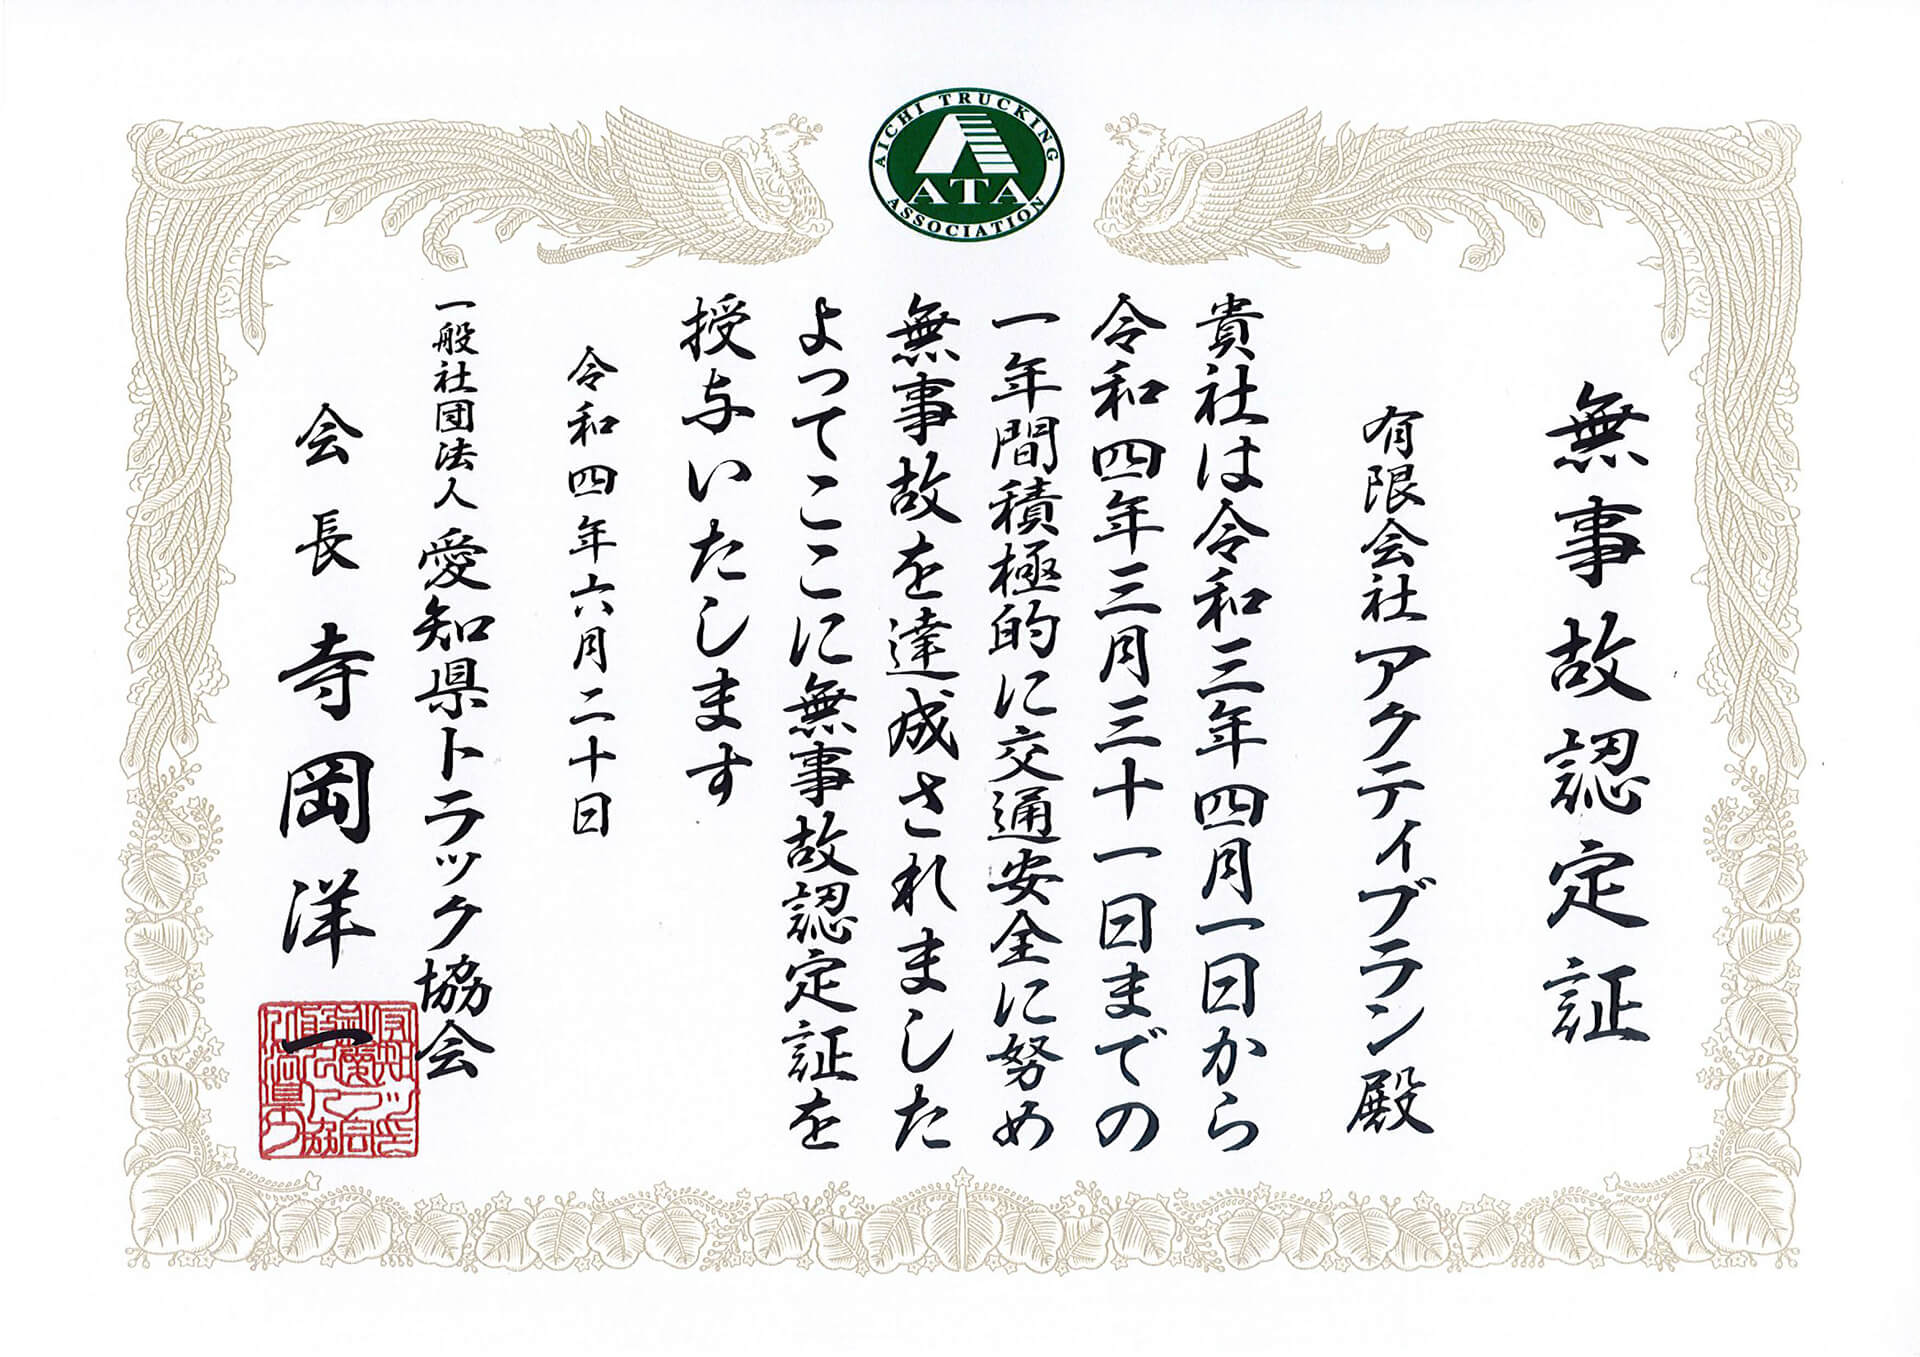 AICHI TRUCKING
ATA
ASSOCIATION
無事故認定証
有限会社アクティブラン殿
貴社は令和三年四月一日から
令和四年三月三十一日までの
一年間積極的に交通安全に努め
無事故を達成されました
よってここに無事故認定証を
授与いたします
令和四年六月二十日
一般社団法人愛知県トラック協会
会長寺岡洋一